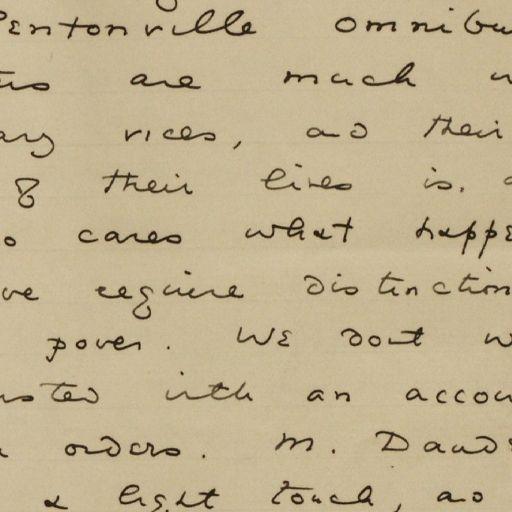 Pentonville omnibu
ers are much w
ary vices, and their
of their lives is. a
o cares what happe
we require distinction
power. We dont w
usted with an accou
orders. M. Daud
a light touch, and